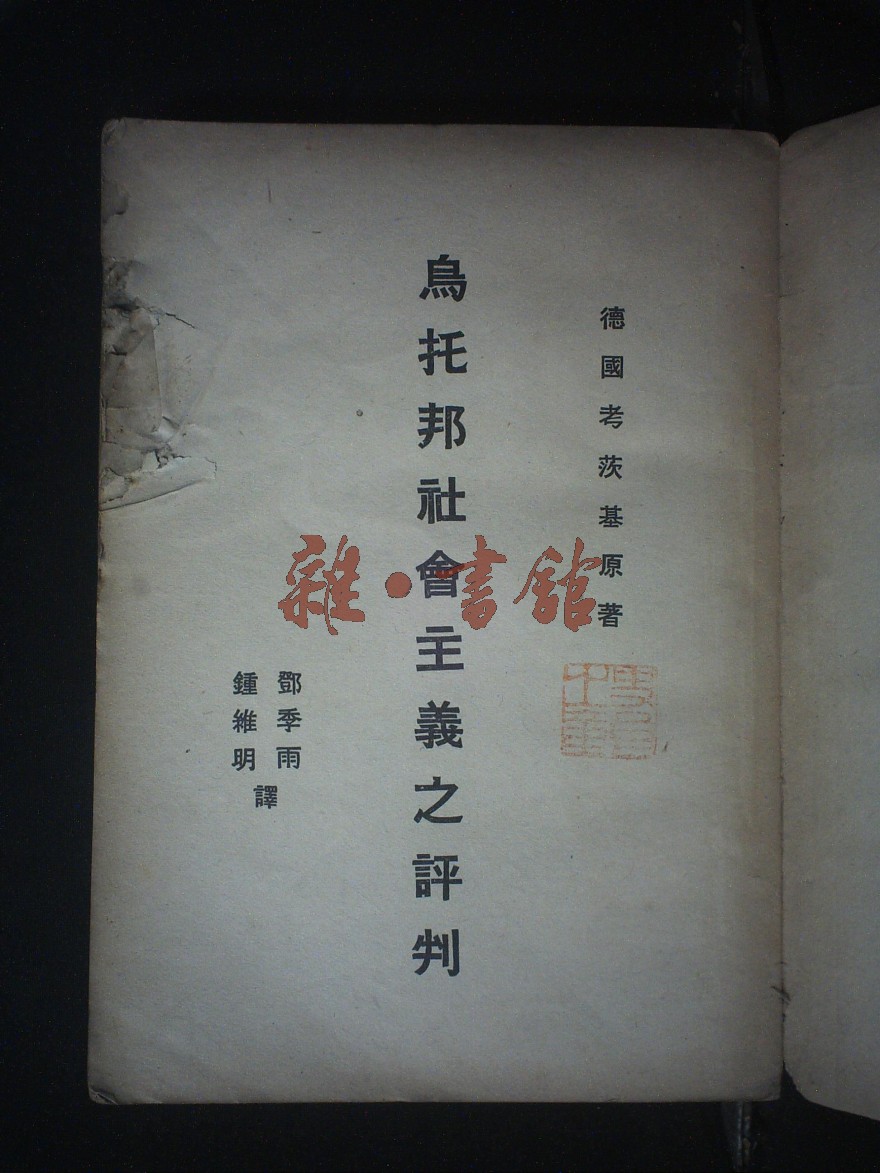 德國考茨基原著
烏托邦社會主義之評判
鄧季雨
鍾維明
譯
雜·書館